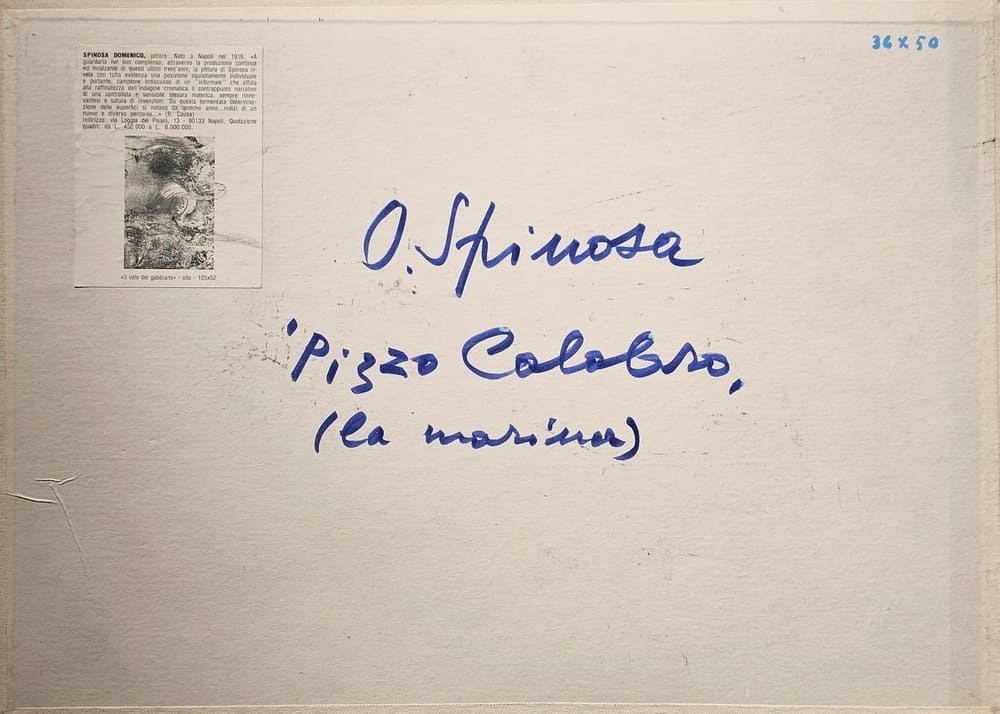 SPINOSA DOMENICO, pittore. Nato a Napoli nel 1916. «A
guardarla nel suo complesso, attraverso la produzione continua
ed incalzante di questi ultimi trent'anni, la pittura di Spinosa ri-
vela con tutta evidenza una posizione squisitamente individuale
e portante, campione indiscusso di un "informale" che affida
alla raffinatezza dell'indagine cromatica il contrappunto narrativo
di una controllata e sensibile stesura materica, sempre rinno-
vantesi e satura di invenzioni. Su questa tormentata determina-
zione delle superfici si notano da qualche anno...indizi di un
nuovo e diverso percorso...» (R. Causa)
Indirizzo: via Loggia dei Pisani, 13 - 80133 Napoli. Quotazione
quadri: da L. 450.000 a L. 8.000.000.
«Il volo del gabbiano» - olio - 105x82
36 x 50
O. Spinosa
'Pizzo Calabro,
(la marina)